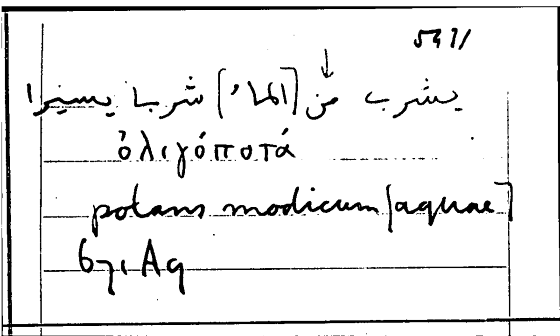 يشرب من [الماء] شربا يسيرا
ὀλιγόποτά
potans modicum [aquae]